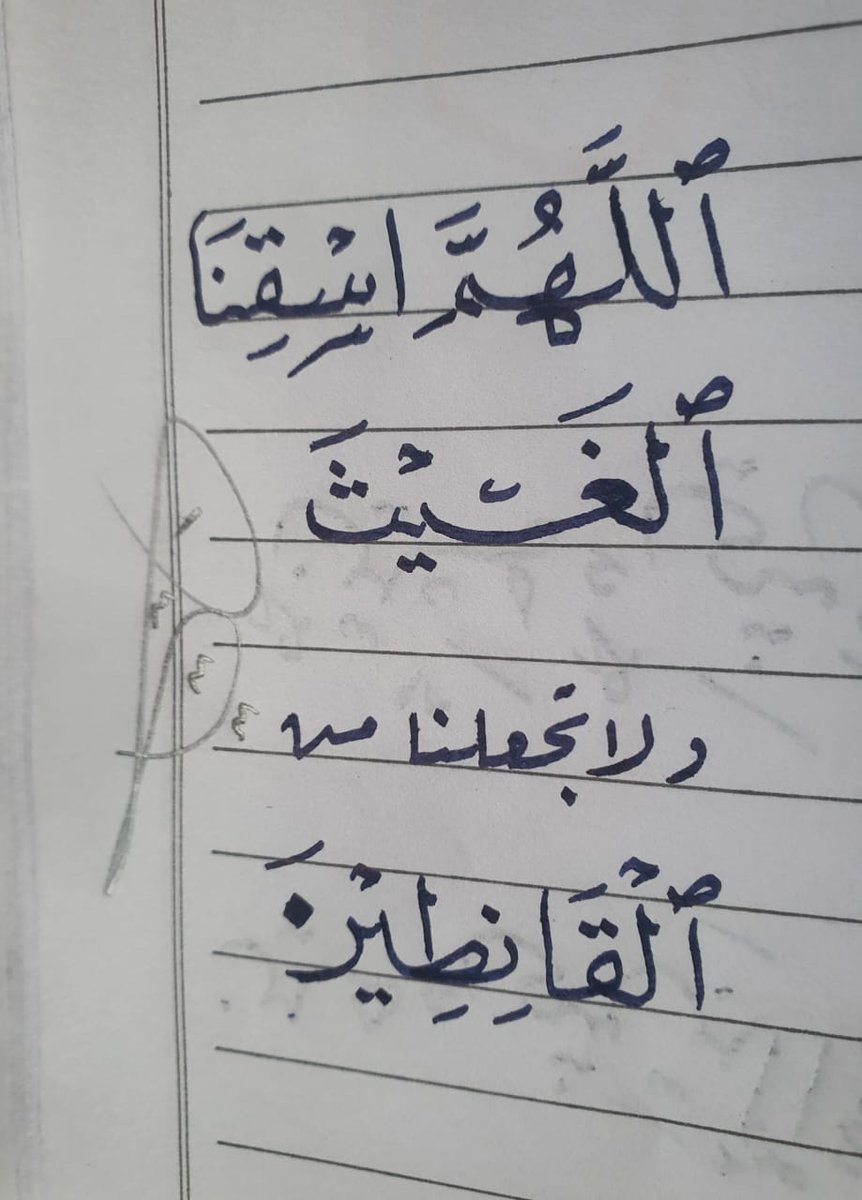 ٱللَّهُمَّ اسْقِنَا
ٱلْغَيْثَ
ولا تجعلنا من
ٱلْقَانِطِيْنَ